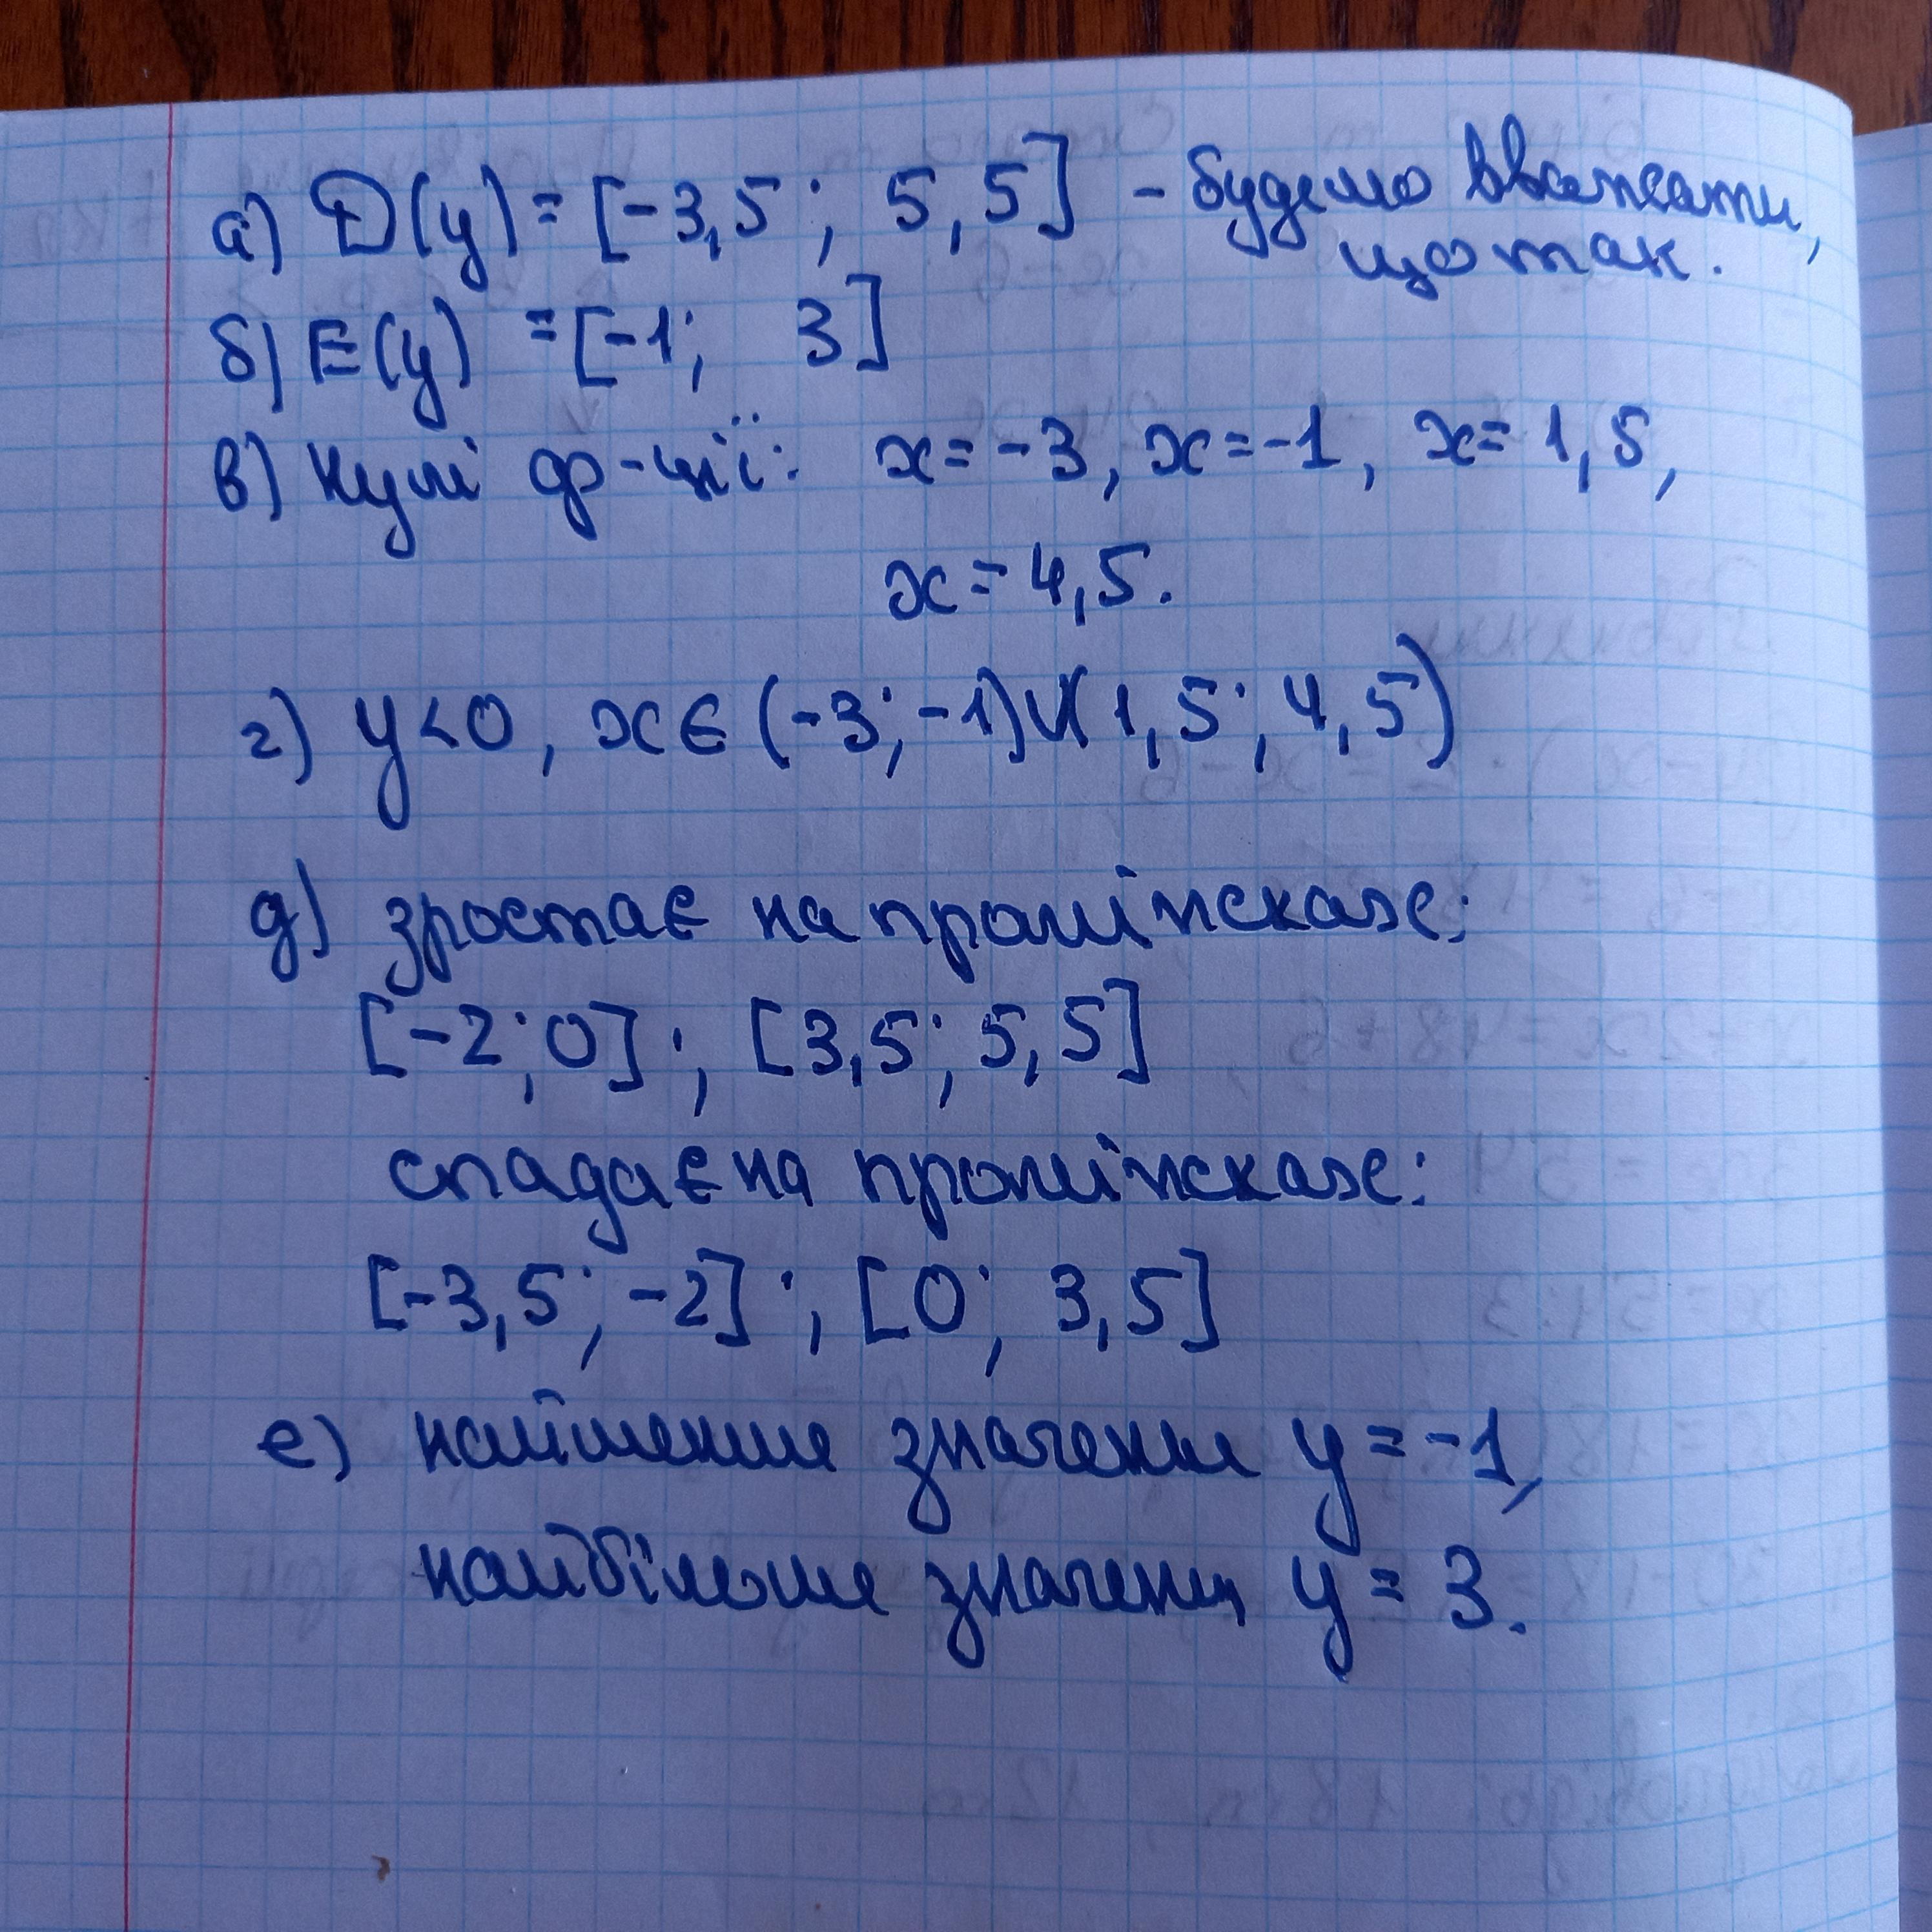 а) D(y) = [-3,5; 5,5] - будемо вважати,
що так.
б) E(y) = [-1; 3]
в) нулі ф-ції: x = -3, x = -1, x = 1,5,
x = 4,5.
г) y < 0, x ∈ (-3; -1) ∪ (1,5; 4,5)
д) зростає на проміжках:
[-2; 0]; [3,5; 5,5]
спадає на проміжках:
[-3,5; -2]; [0; 3,5]
е) найменше значення y = -1,
найбільше значення y = 3.